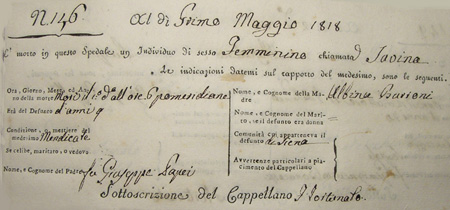 N. 146 XI dì Primo Maggio 1818
E' morto in questo Spedale un Individuo di sesso Femminino chiamata
Le indicazioni datemi sul rapporto del medesimo, sono le seguenti.
Ora, Giorno, Mese, ed An-
no della morte dall'ore 9 pomeridiane
Età del Defunto d'anni 9
Condizione, o mestiere del
medesimo Mendicante
Se celibe, maritato, o vedovo
Nome, e Cognome del Padre fu Giuseppe
Nome, e Cognome della Ma-
dre Albina
Nome, e Cognome del Mari-
to, se il defunto era donna
Comunità cui apparteneva il
defunto di Siena
Avvertenze particolari a pia-
cimento del Cappellano
Sottoscrizione del Cappellano